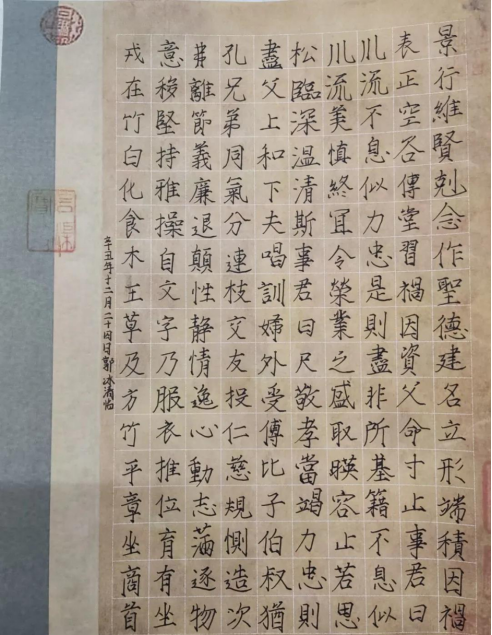 景行維賢剋念作聖德建名立形端積因禍
表正空谷傳堂習禍因資父命寸止事君曰
川流不息似力忠是則盡非所基籍不息似
川流美慎終宜令榮業之盛取暎容止若思
松臨深溫清斯事君曰尺敬孝當竭力忠則
盡父上和下夫唱訓婦外受傅比子伯叔猶
孔兄弟同氣分連枝交友投仁慈規惻造次
弗離節義廉退顛性静情逸心動志滿逐物
意移堅持雅操自文字乃服衣推位育有坐
戎在竹白化食木王草及方竹平章坐商首
辛丑年十二月二十四日郭冰清临